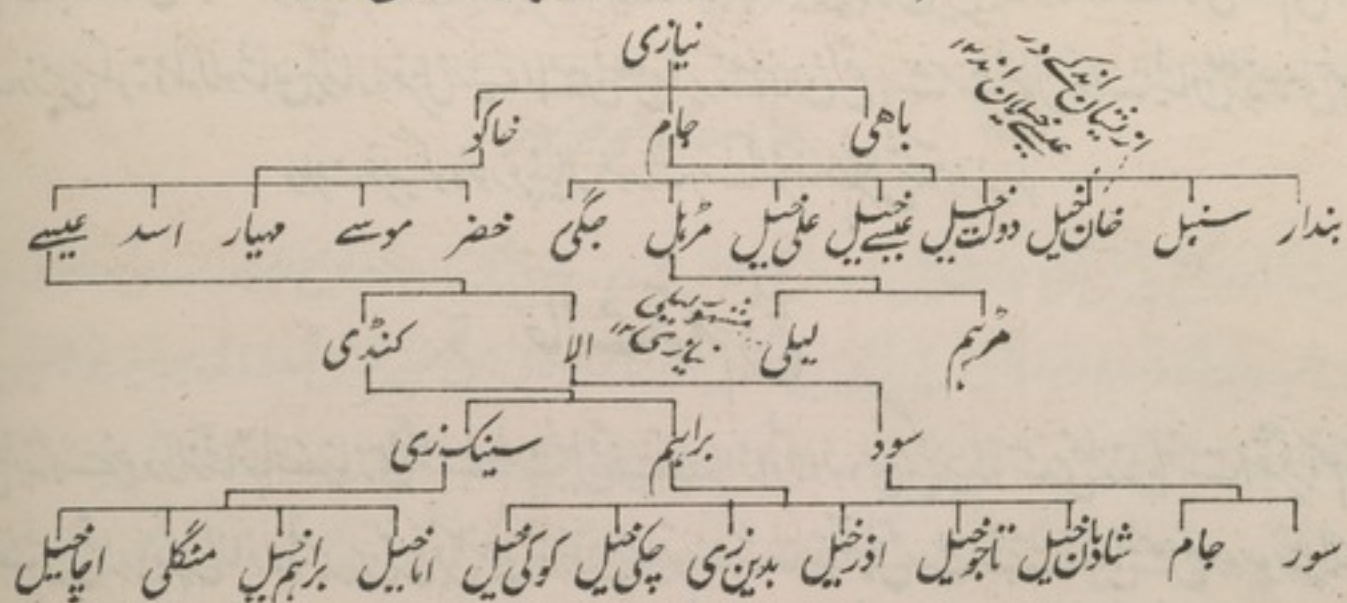 نیازی
باھی جام خاکو
بندار سنبل خان خیل دولت خیل عیسے خیل علی خیل مڑہل جگی خضر موسے مہیار اسد عیسے
مڑہم لیلی الا کنڈی
سود براہم سینک زی
سور جام شادن باخیل تاجو خیل اذر خیل بدین زی چکی خیل کوکی خیل اما خیل براہم خیل منگلی اچا خیل